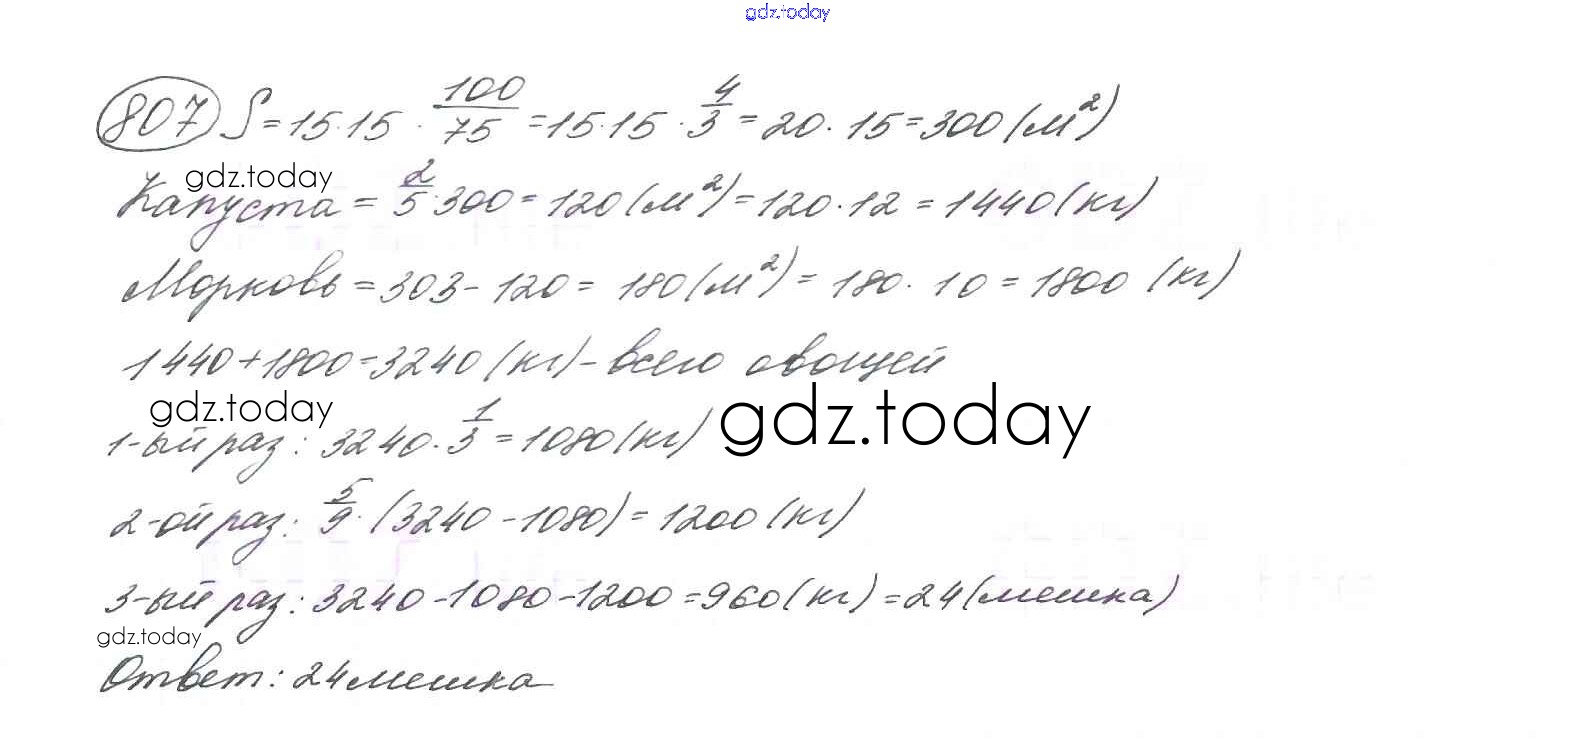 gdz.today
807 S = 15·15 · 100/75 = 15·15 · 4/3 = 20 · 15 = 300 (м²)
gdz.today
Капуста = 2/5 · 300 = 120 (м²) = 120 · 12 = 1440 (кг)
Морковь = 303 - 120 = 180 (м²) = 180 · 10 = 1800 (кг)
1440 + 1800 = 3240 (кг) - всего овощей
gdz.today gdz.today
1-ый раз: 3240 · 1/3 = 1080 (кг)
2-ой раз: 5/9 · (3240 - 1080) = 1200 (кг)
3-ый раз: 3240 - 1080 - 1200 = 960 (кг) = 24 (мешка)
gdz.today
Ответ: 24 мешка